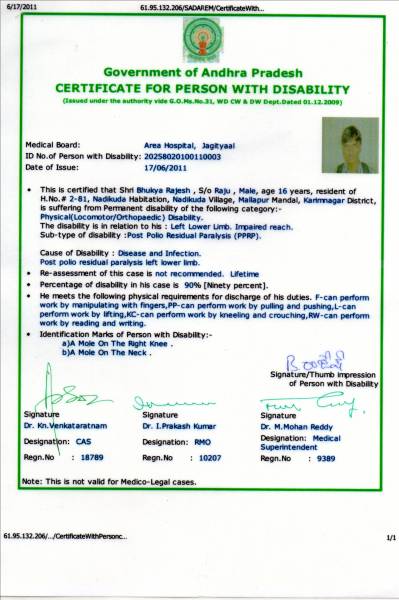 6/17/2011
61.95.132.206/SADAREM/CertificateWith...
Government of Andhra Pradesh
CERTIFICATE FOR PERSON WITH DISABILITY
(Issued under the authority vide G.O.Ms.No.31, WD CW & DW Dept.Dated 01.12.2009)
Medical Board: Area Hospital, Jagityaal
ID No.of Person with Disability: 20258020100110003
Date of Issue: 17/06/2011
• This is certified that Shri Bhukya Rajesh , S/o Raju , Male, age 16 years, resident of
H.No.# 2-81, Nadikuda Habitation, Nadikuda Village, Mallapur Mandal, Karimnagar District,
is suffering from Permanent disability of the following category:-
Physical(Locomotor/Orthopaedic) Disability.
The disability is in relation to his : Left Lower Limb. Impaired reach.
Sub-type of disability :Post Polio Residual Paralysis (PPRP).
Cause of Disability : Disease and Infection.
Post polio residual paralysis left lower limb.
• Re-assessment of this case is not recommended. Lifetime
• Percentage of disability in his case is 90% [Ninety percent].
• He meets the following physical requirements for discharge of his duties. F-can perform
work by manipulating with fingers,PP-can perform work by pulling and pushing,L-can
perform work by lifting,KC-can perform work by kneeling and crouching,RW-can perform
work by reading and writing.
• Identification Marks of Person with Disability:-
a)A Mole On The Right Knee .
b)A Mole On The Neck .
Signature/Thumb impression
of Person with Disability
Signature Signature Signature
Dr. Kn.Venkataratnam Dr. I.Prakash Kumar Dr. M.Mohan Reddy
Designation: CAS Designation: RMO Designation: Medical
Superintendent
Regn.No : 18789 Regn.No : 10207 Regn.No : 9389
Note: This is not valid for Medico-Legal cases.
61.95.132.206/.../CertificateWithPersonc...
1/1